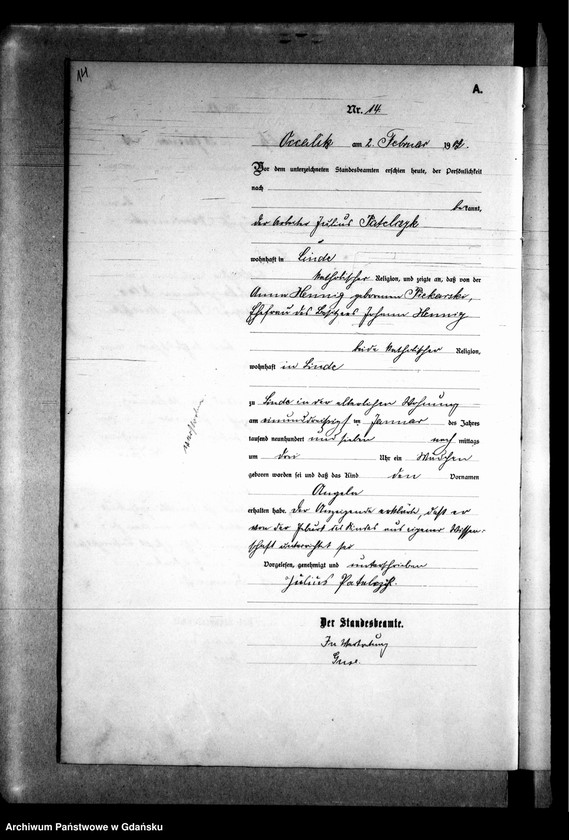 14
A.
Nr. 14
am 2. Februar 19
Vor dem unterzeichneten Standesbeamten erschien heute, der Persönlichkeit
nach
bekannt,
der Arbeiter Julius
wohnhaft in Linde
katholischer Religion, und zeigte an, daß von der
Anna Hennig geborenen Piekarski,
Ehefrau des Besitzers Johann Hennig
beide katholischer Religion,
wohnhaft in Linde
zu Linde in der elterlichen Wohnung
am neunundzwanzigsten Januar des Jahres
tausend neunhundert und sieben nach mittags
um drei Uhr ein Mädchen
geboren worden sei und daß das Kind den Vornamen
Angela
erhalten habe. Der Anzeigende erklärte, daß er
von der Geburt des Kindes aus eigener Wissen-
schaft unterrichtet sei
Vorgelesen, genehmigt und unterschrieben
Julius
Der Standesbeamte.
In Vertretung
Archiwum Państwowe w Gdańsku